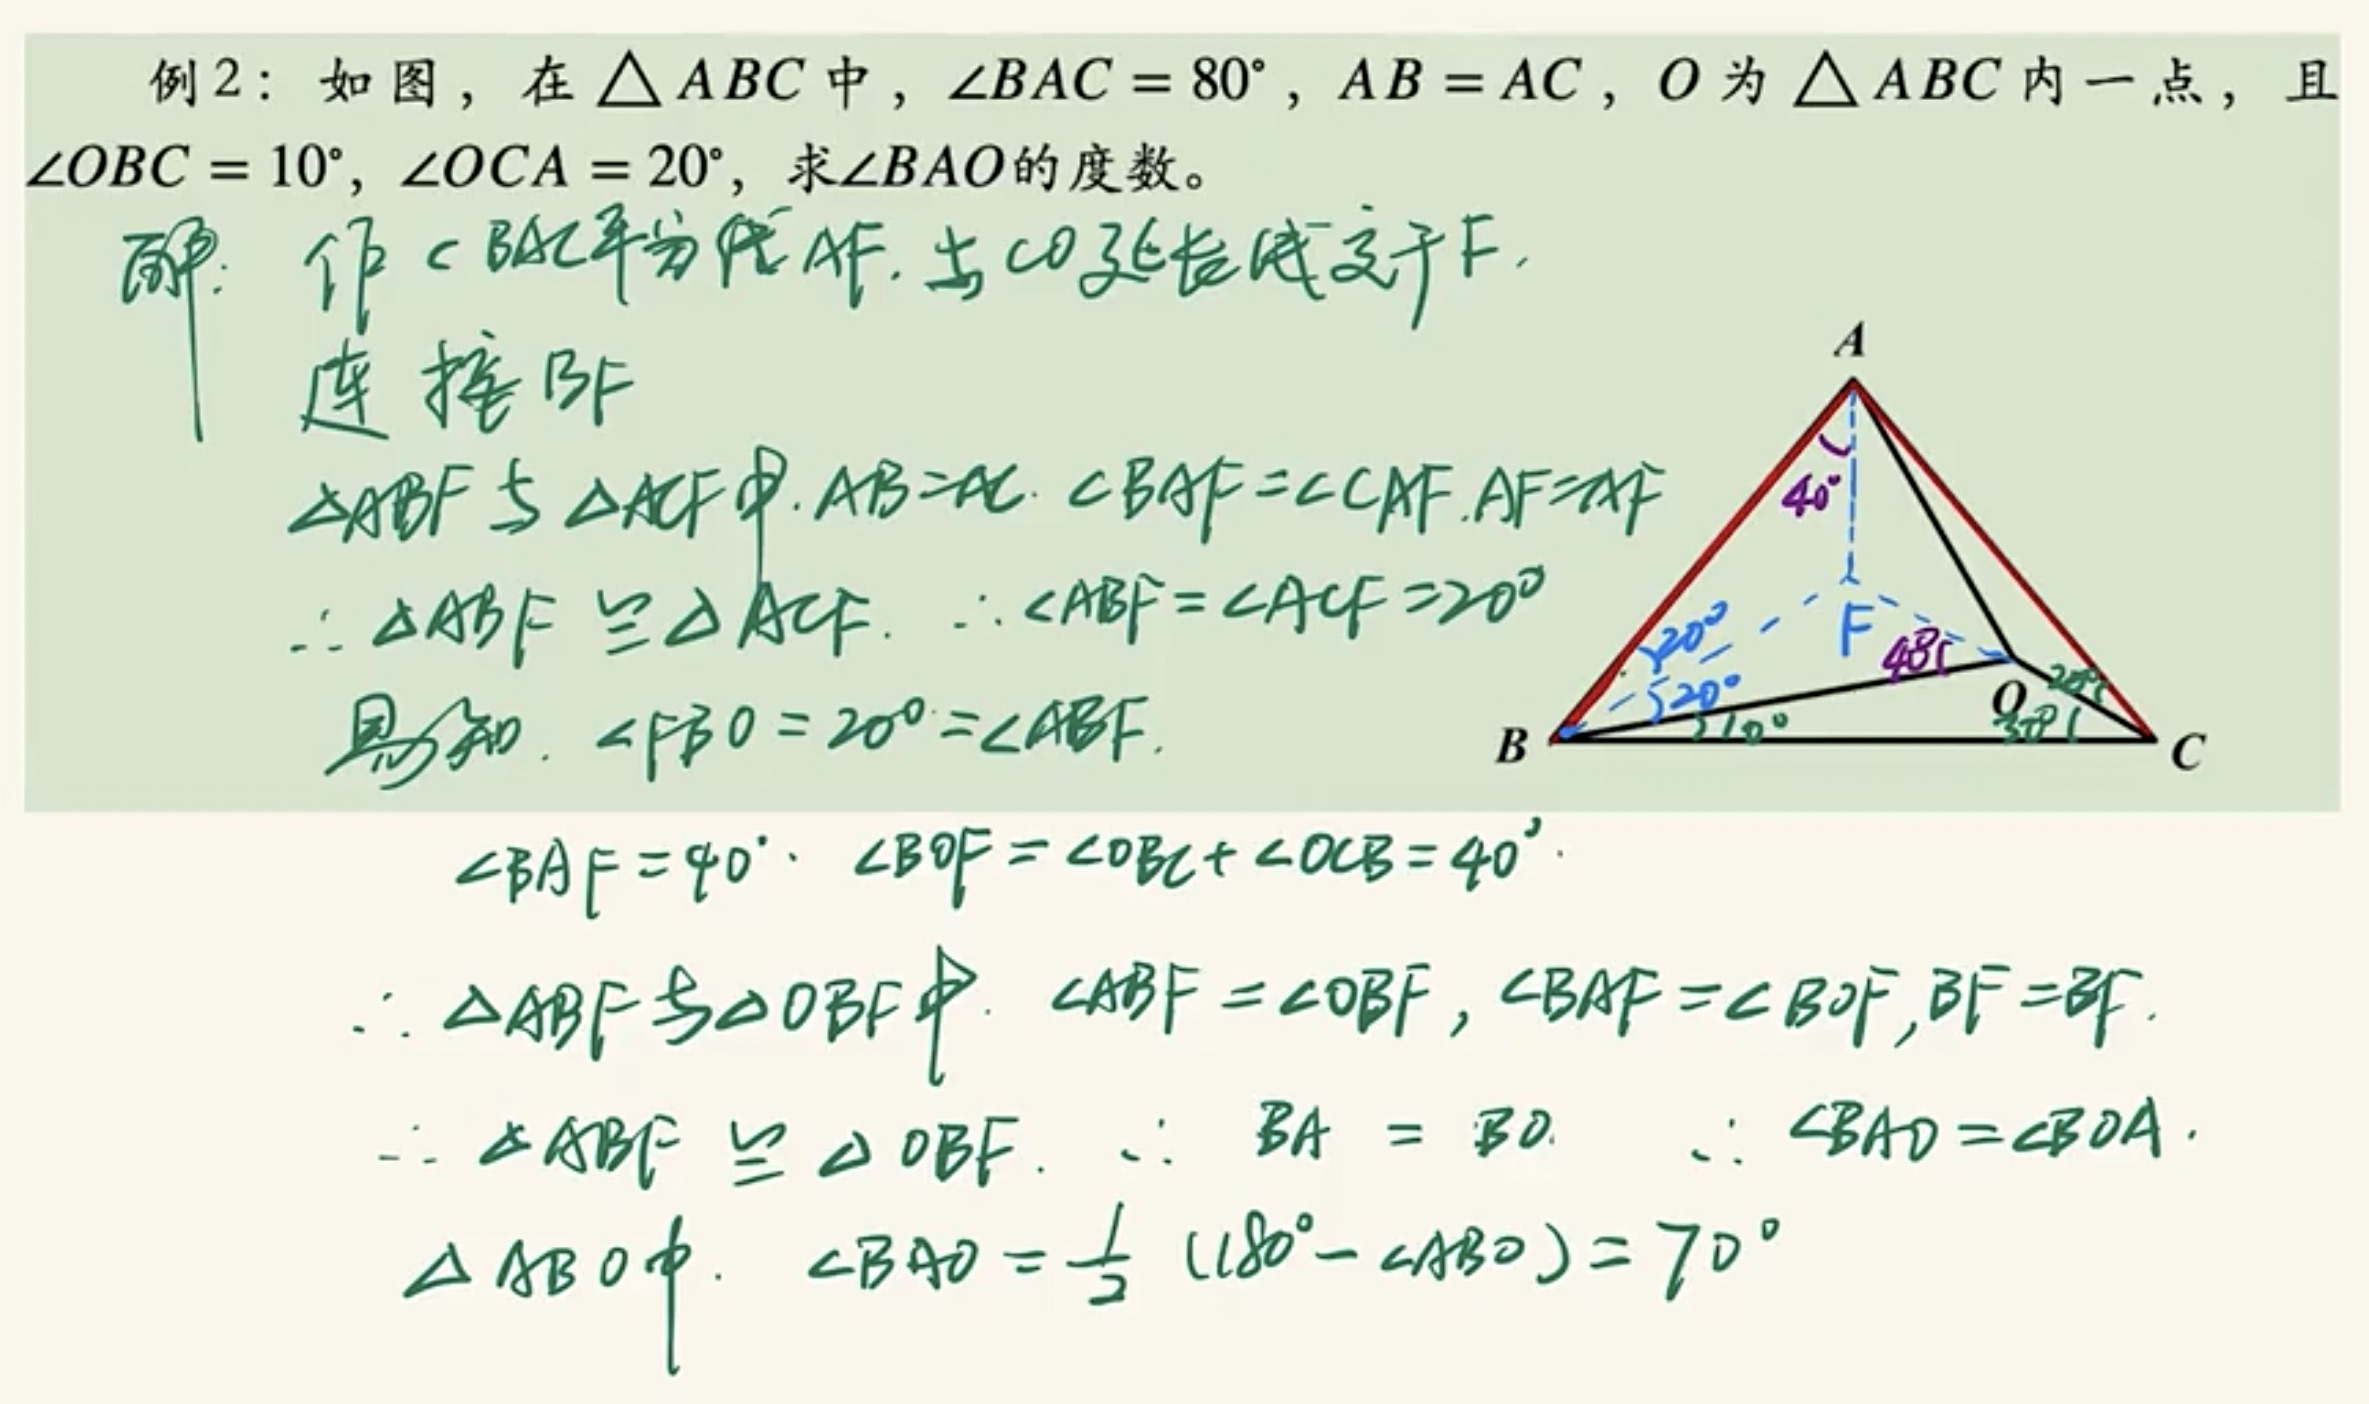 例2：如图，在△ABC中，∠BAC=80°，AB=AC，O为△ABC内一点，且
∠OBC=10°，∠OCA=20°，求∠BAO的度数。
解: 作∠BAC平分线AF.与CO延长线交于F.
连接BF
△ABF与△ACF中.AB=AC.∠BAF=∠CAF.AF=AF
∴△ABF≌△ACF. ∴∠ABF=∠ACF=20°
易知.∠FBO=20°=∠ABF.
∠BAF=40°. ∠BOF=∠OBC+∠OCB=40°.
∴△ABF与△OBF中. ∠ABF=∠OBF,∠BAF=∠BOF,BF=BF.
∴△ABF≌△OBF. ∴ BA=BO. ∴∠BAO=∠BOA.
△ABO中. ∠BAO=1/2(180°-∠ABO)=70°
A
40°
F
20°
40°
20°
20°
O
10°
30°
B
C